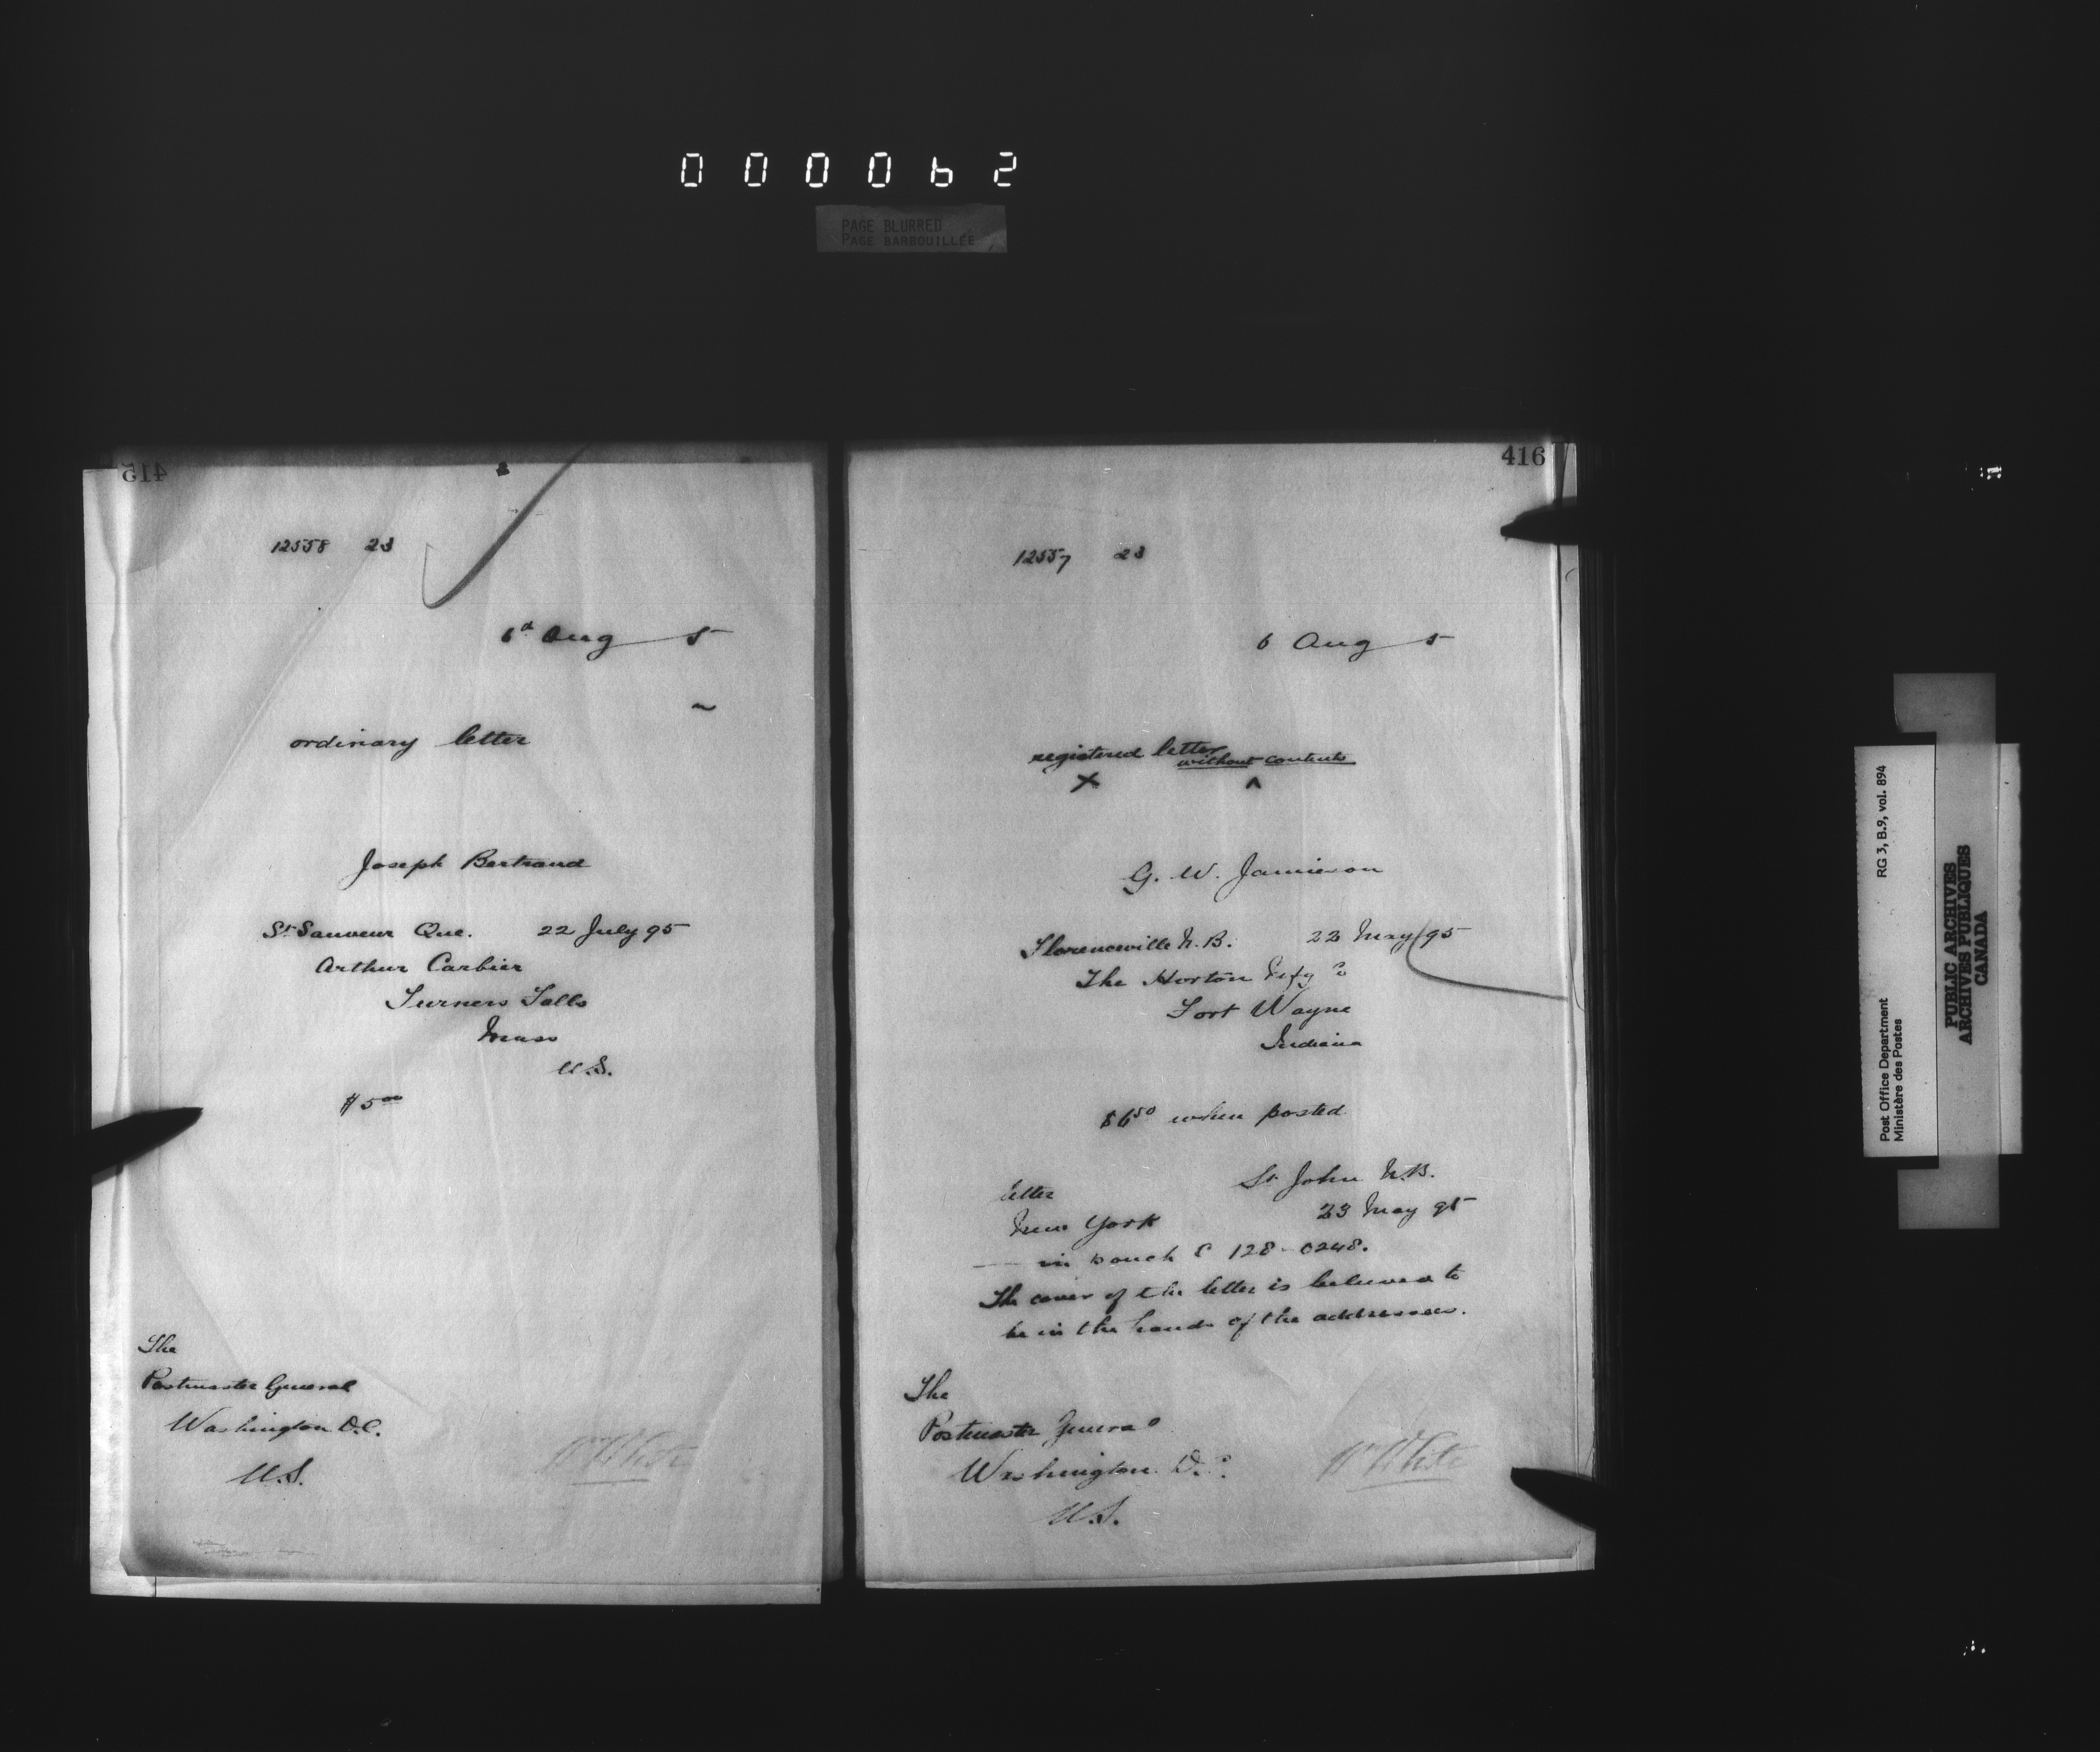 000062
PAGE BLURRED
PAGE BARBOUILLÉE
415
12558 23
6th Aug 5
ordinary letter
Joseph Bertrand
St Sauveur Que. 22 July 95
Arthur Carbier
Turners Falls
Mass
U.S.
$5 00
The
Postmaster General
Washington D.C.
U.S.
Wm White
416
12557 23
6 Aug 5
registered letter without contents
x ^
G. W. Jamieson
Florenceville N.B. 22 May 95
The Horton Mfg Co
Fort Wayne
Indiana
$6 50 when posted
letter St John N.B.
New York 23 May 95
in pouch 128-0248.
The cover of the letter is believed to
be in the hands of the addressees.
The
Postmaster General
Washington D.C.
U.S.
Wm White
Post Office Department RG 3, B.9, vol. 894
Ministère des Postes
PUBLIC ARCHIVES
ARCHIVES PUBLIQUES
CANADA